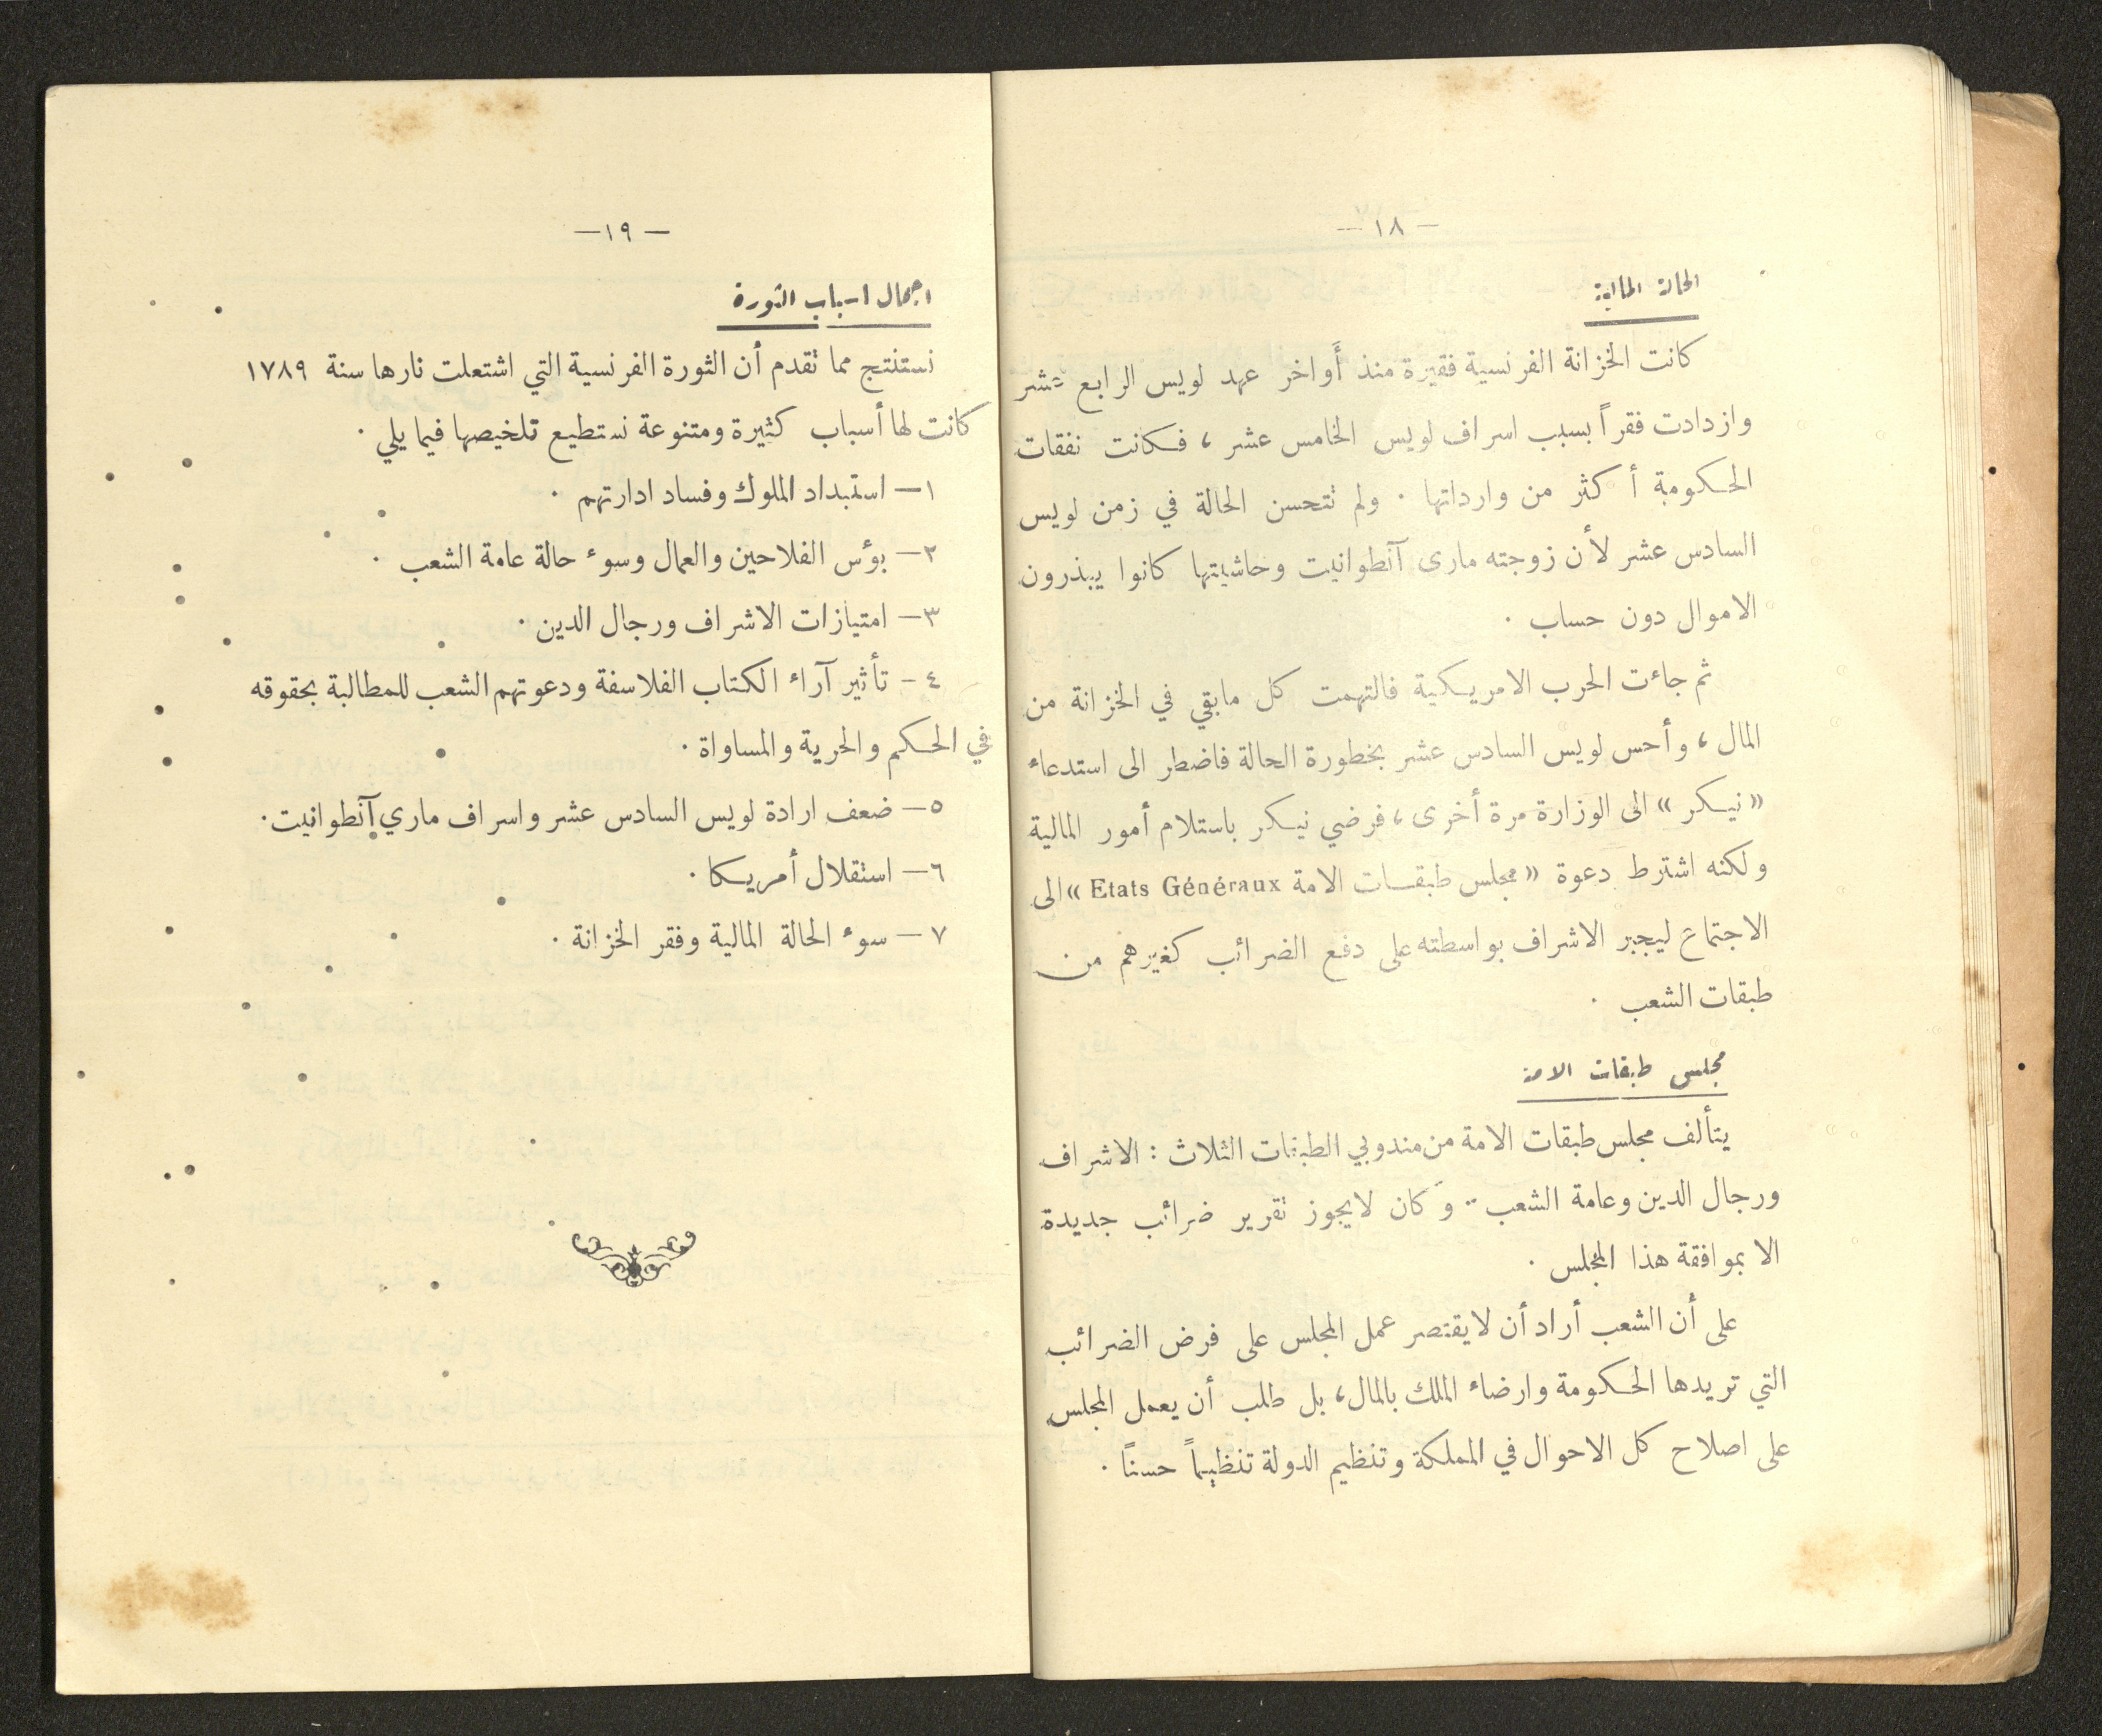 — ١٨ —
الحالة المالية
كانت الخزانة الفرنسية فقيرة منذ أَواخر عهد لويس الرابع عشر
وازدادت فقراً بسبب اسراف لويس الخامس عشر ، فكانت نفقات
الحكومة أكثر من وارداتها . ولم تتحسن الحالة في زمن لويس
السادس عشر لأن زوجته مارى آنطوانيت وحاشيتها كانوا يبذرون
الاموال دون حساب .
ثم جاءت الحرب الامريكية فالتهمت كل مابقي في الخزانة من
المال ، وأحس لويس السادس عشر بخطورة الحالة فاضطر الى استدعاء
« نيكر » الى الوزارة مرة أخرى ، فرضي نيكر باستلام أمور المالية
ولكنه اشترط دعوة « مجلس طبقات الامة Etats Généraux » الى
الاجتماع ليجبر الاشراف بواسطته على دفع الضرائب كغيرهم من
طبقات الشعب .
مجلس طبقات الامة
يتألف مجلس طبقات الامة من مندوبي الطبقات الثلاث : الاشراف
ورجال الدين وعامة الشعب . وكان لايجوز تقرير ضرائب جديدة
الا بموافقة هذا المجلس .
على أن الشعب أراد أن لايقتصر عمل المجلس على فرض الضرائب
التي تريدها الحكومة وارضاء الملك بالمال ، بل طلب أن يعمل المجلس
على اصلاح كل الاحوال في المملكة وتنظيم الدولة تنظيماً حسناً .
— ١٩ —
اجمال اسباب الثورة
نستنتج مما تقدم أن الثورة الفرنسية التي اشتعلت نارها سنة ١٧٨٩
كانت لها أسباب كثيرة ومتنوعة نستطيع تلخيصها فيما يلي .
١ — استبداد الملوك وفساد ادارتهم .
٢ — بؤس الفلاحين والعمال وسوء حالة عامة الشعب .
٣ — امتيازات الاشراف ورجال الدين .
٤ - تأثير آراء الكتاب الفلاسفة ودعوتهم الشعب للمطالبة بحقوقه
في الحكم والحرية والمساواة .
٥ — ضعف ارادة لويس السادس عشر واسراف ماري آنطوانيت .
٦ — استقلال أمريكا .
٧ — سوء الحالة المالية وفقر الخزانة .